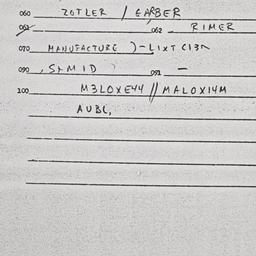 060 ZOTLER / GARBER
061 062 RIMER
070 MANUFACTURE )-LIXT CI3N
090 , SAMID 091 —
100 M3LOXE44 // MALOXI4M
AUBL,